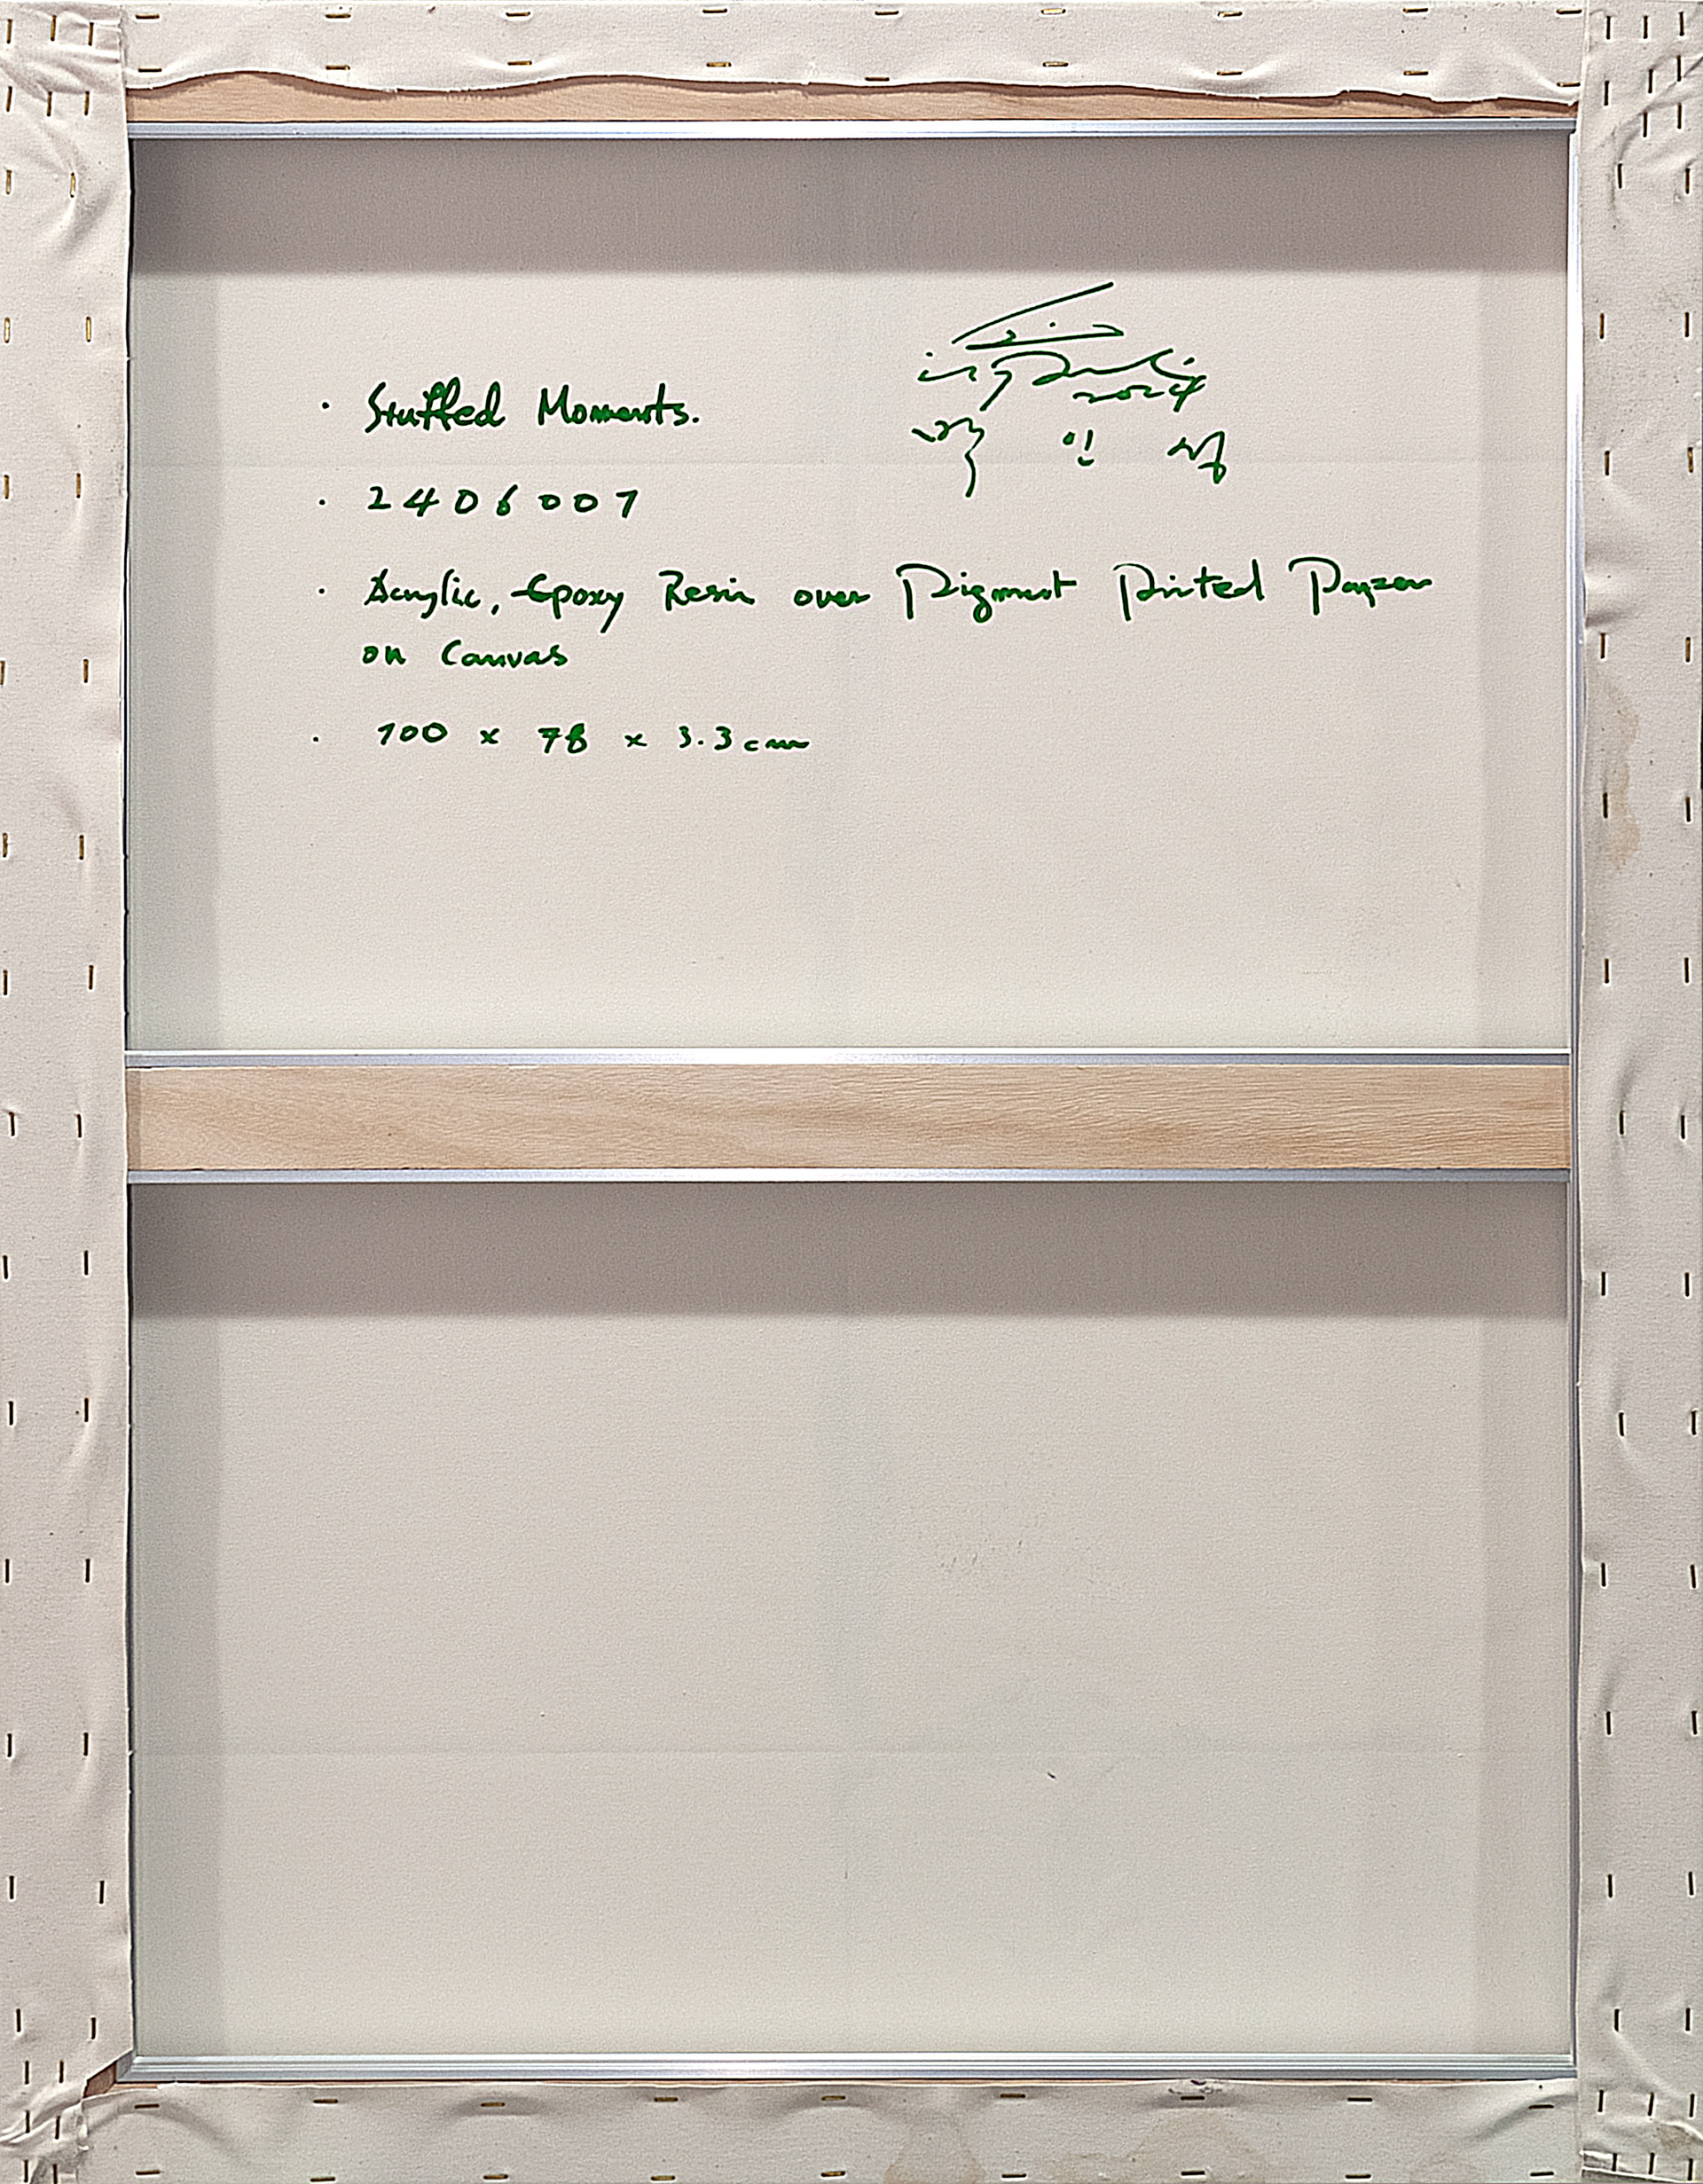 · Stuffed Moments.
2024
· 2406007
· Acrylic, Epoxy Resin over Pigment Printed Paper
on Canvas
· 100 x 78 x 3.3cm